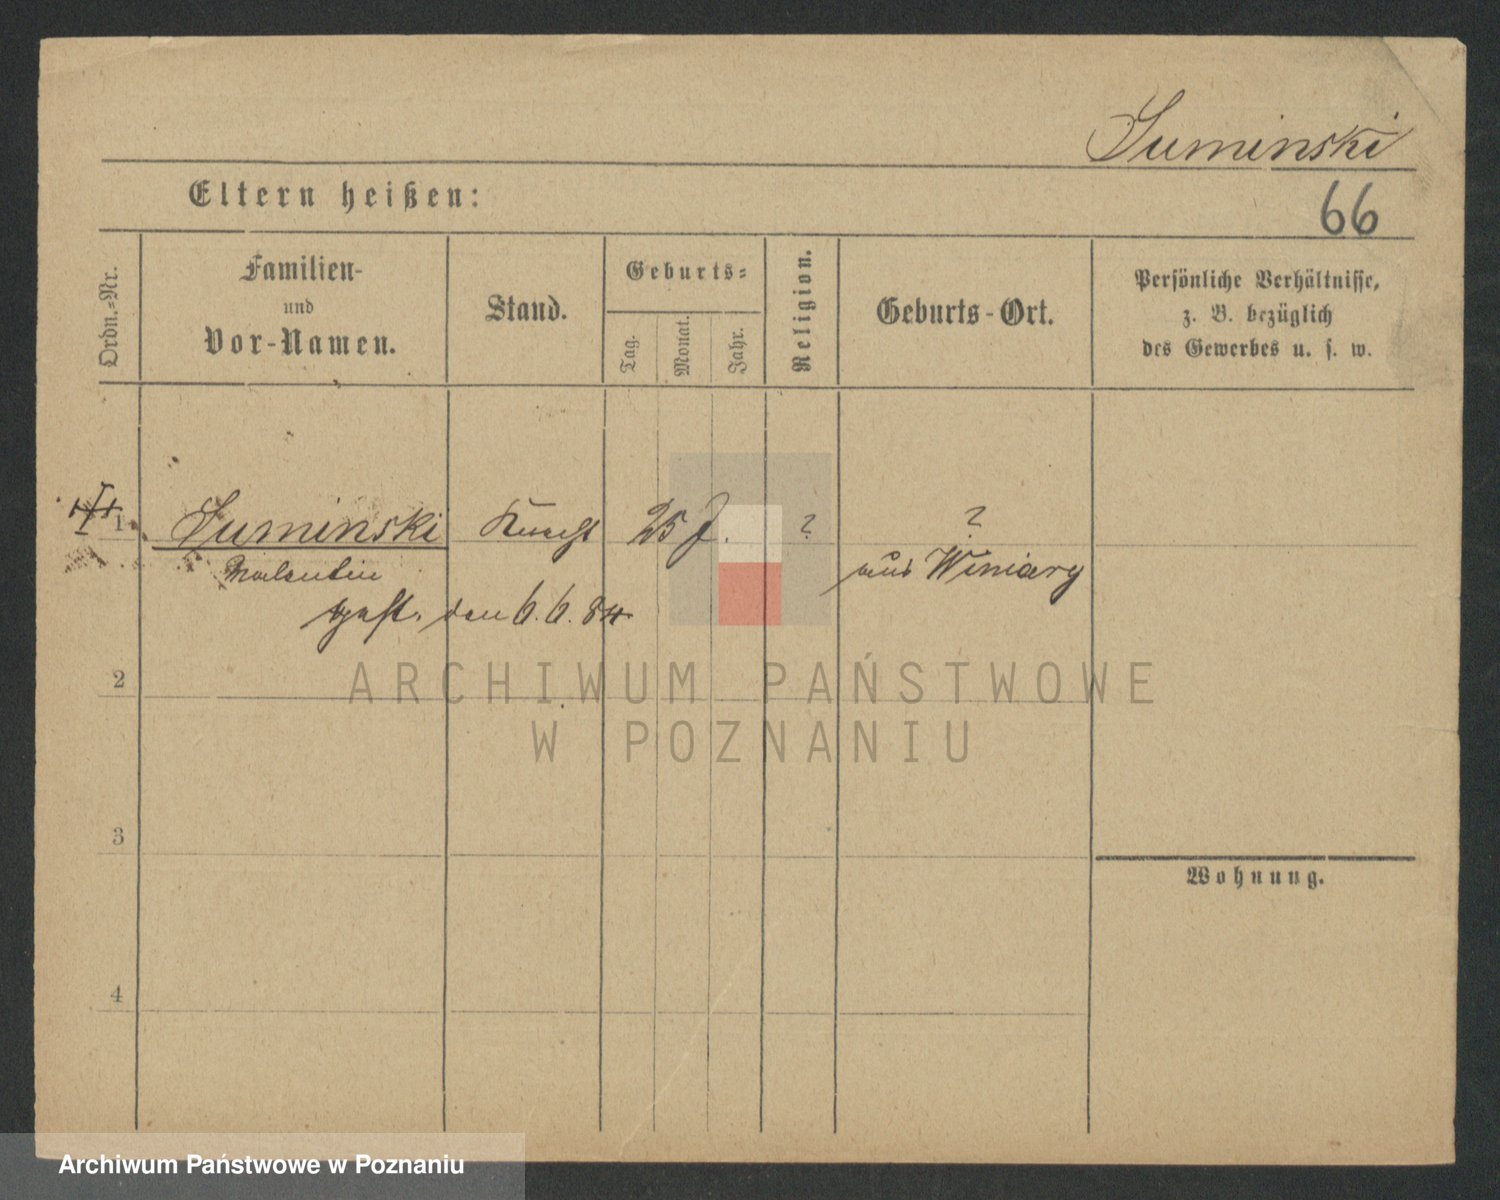 Suminski
Eltern heißen:
66
Ordn.-Nr.
Familien-
und
Vor-Namen.
Stand.
Geburts-
Tag.
Monat.
Jahr.
Religion.
Geburts-Ort.
Persönliche Verhältnisse,
z. B. bezüglich
des Gewerbes u. s. w.
1 Suminski Knecht 25 J. ? ?
Valentin aus Winiary
gest. den 6. 6. 84
2
3
4
Wohnung.
ARCHIWUM PAŃSTWOWE
W POZNANIU
Archiwum Państwowe w Poznaniu